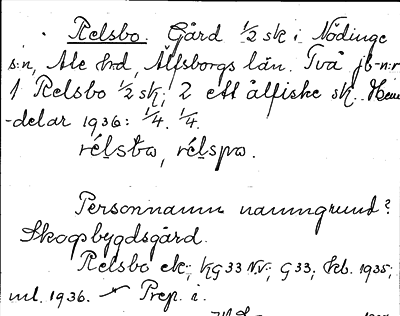 Relsbo. Gård 1/2 sk i Nödinge
s:n, Ale hrd, Älfsborgs län. Två jb-n:r
1 Relsbo 1/2 sk; 2 ett ålfiske sk. Hem
-delar 1936: 1/4. 1/4.
rélsbω, rélspω.
Personnamn namngrund?
Skogsbygdsgård.
Relsbo ek; KG 33 N.v.; G 33; Jkb. 1935;
ml. 1936. Prep. i.